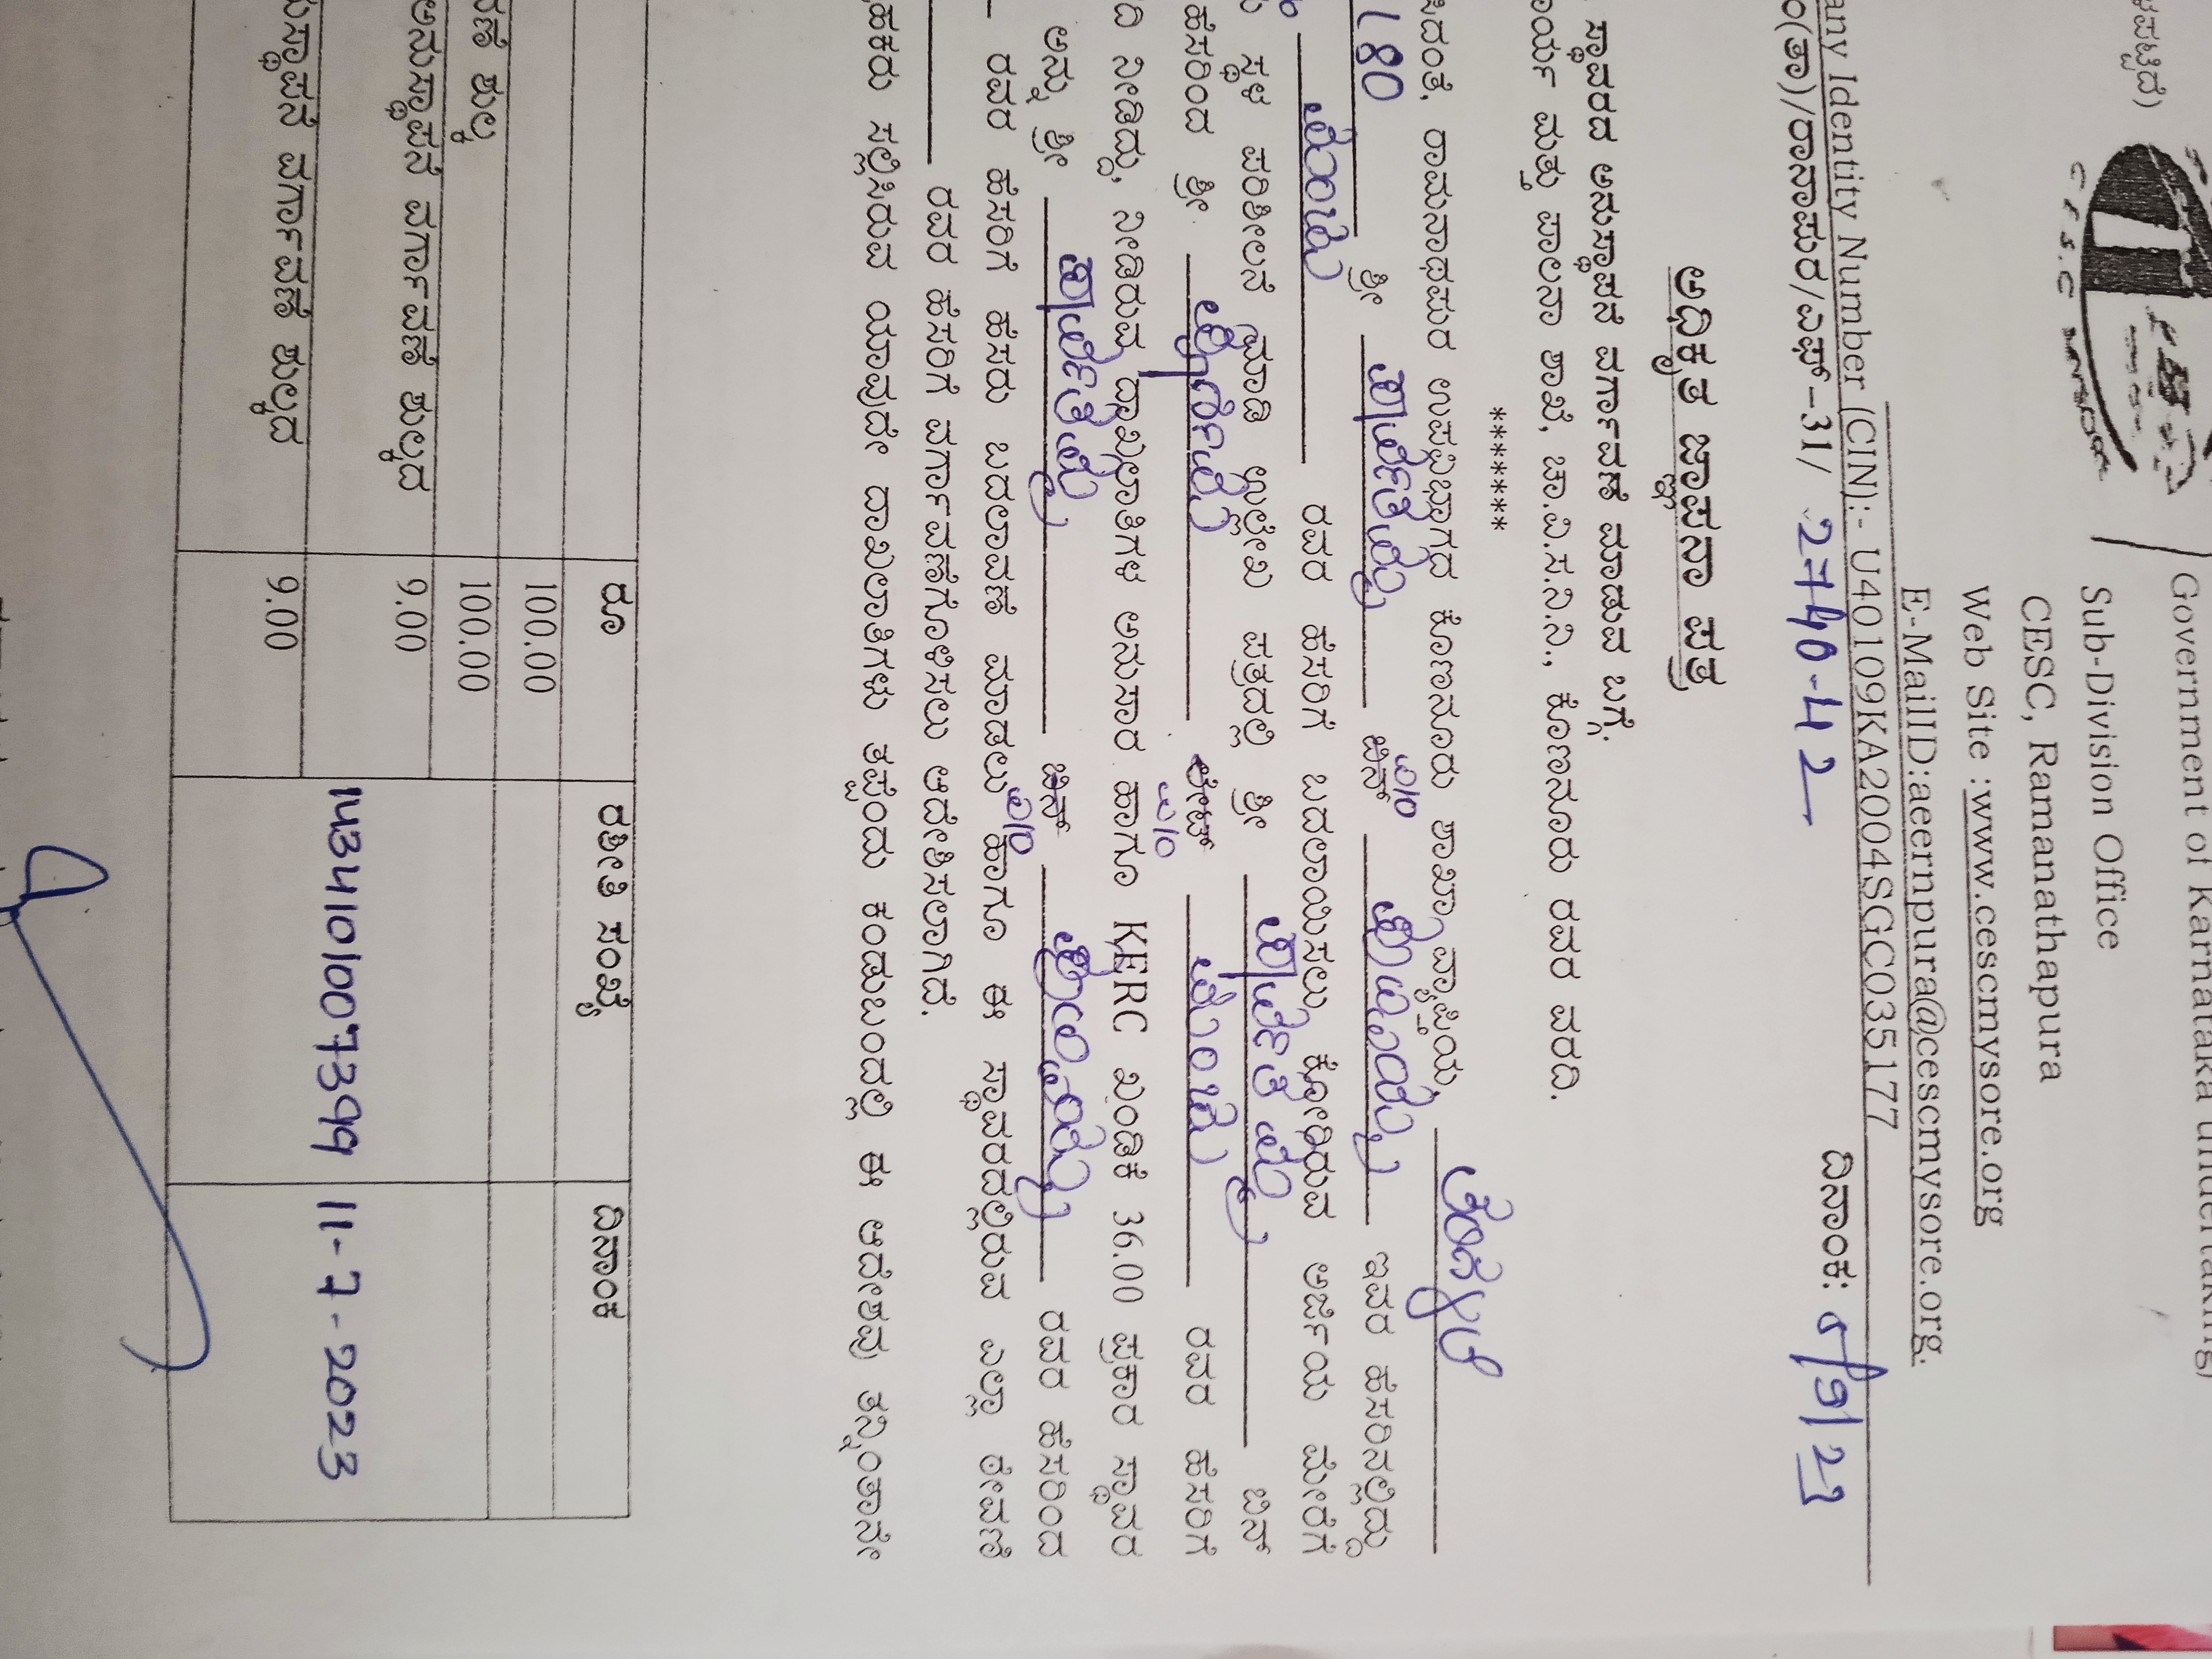 ಳಪಟ್ಟಿದೆ)
Government of Karnataka undertaking)
Sub-Division Office
CESC, Ramanathapura
Web Site :www.cescmysore.org
E-MailID:aeernpura@cescmysore.org.
any Identity Number (CIN):- U40109KA2004SGC035177
ಂ(ತಾ)/ರಾನಾಪುರ/ಎಫ್-31/ 2740-42 ದಿನಾಂಕ:
ಅಧಿಕೃತ ಜ್ಞಾಪನಾ ಪತ್ರ
ಸ್ಥಾವರದ ಅನುಸ್ಥಾಪನೆ ವರ್ಗಾವಣೆ ಮಾಡುವ ಬಗ್ಗೆ.
ರ್ಯ ಮತ್ತು ಪಾಲನಾ ಶಾಖೆ, ಚಾ.ವಿ.ಸ.ನಿ.ನಿ., ಕೊಣನೂರು ರವರ ವರದಿ.
*******
ಸಿದಂತೆ, ರಾಮನಾಥಪುರ ಉಪವಿಭಾಗದ ಕೊಣನೂರು ಶಾಖಾ ವ್ಯಾಪ್ತಿಯ,
L 80 ಶ್ರೀ ಪಾರ್ವತಮ್ಮ ಬಿನ್ W/o ಇವರ ಹೆಸರಿನಲ್ಲಿದ್ದು
ರವರ ಹೆಸರಿಗೆ ಬದಲಾಯಿಸಲು ಕೋರಿರುವ ಅರ್ಜಿಯ ಮೇರೆಗೆ
ಸ್ಥಳ ಪರಿಶೀಲನೆ ಮಾಡಿ ಉಲ್ಲೇಖ ಪತ್ರದಲ್ಲಿ ಶ್ರೀ ಪಾರ್ವತಮ್ಮ ಬಿನ್
ಹೆಸರಿಂದ ಶ್ರೀ ಲೇಟ್ W/o ರವರ ಹೆಸರಿಗೆ
ದಿ ನೀಡಿದ್ದು, ನೀಡಿರುವ ದಾಖಲಾತಿಗಳ ಅನುಸಾರ ಹಾಗೂ KERC ಖಂಡಿಕೆ 36.00 ಪ್ರಕಾರ ಸ್ಥಾವರ
ಅನ್ನು ಶ್ರೀ ಪಾರ್ವತಮ್ಮ ಬಿನ್ W/o ರವರ ಹೆಸರಿಂದ
ರವರ ಹೆಸರಿಗೆ ಹೆಸರು ಬದಲಾವಣೆ ಮಾಡಲು ಹಾಗೂ ಈ ಸ್ಥಾವರದಲ್ಲಿರುವ ಎಲ್ಲಾ ಠೇವಣಿ
ರವರ ಹೆಸರಿಗೆ ವರ್ಗಾವಣೆಗೊಳಿಸಲು ಆದೇಶಿಸಲಾಗಿದೆ.
ಹಕರು ಸಲ್ಲಿಸಿರುವ ಯಾವುದೇ ದಾಖಲಾತಿಗಳು ತಪ್ಪೆಂದು ಕಂಡುಬಂದಲ್ಲಿ ಈ ಆದೇಶವು ತನ್ನಿಂತಾನೇ
ರೂ ರಶೀತಿ ಸಂಖ್ಯೆ ದಿನಾಂಕ
100.00
ಶುಲ್ಕ 100.00
ಅನುಸ್ಥಾಪನೆ ವರ್ಗಾವಣೆ ಶುಲ್ಕದ 9.00
ನುಸ್ಥಾಪನೆ ವರ್ಗಾವಣೆ ಶುಲ್ಕದ 9.00
11-7-2023